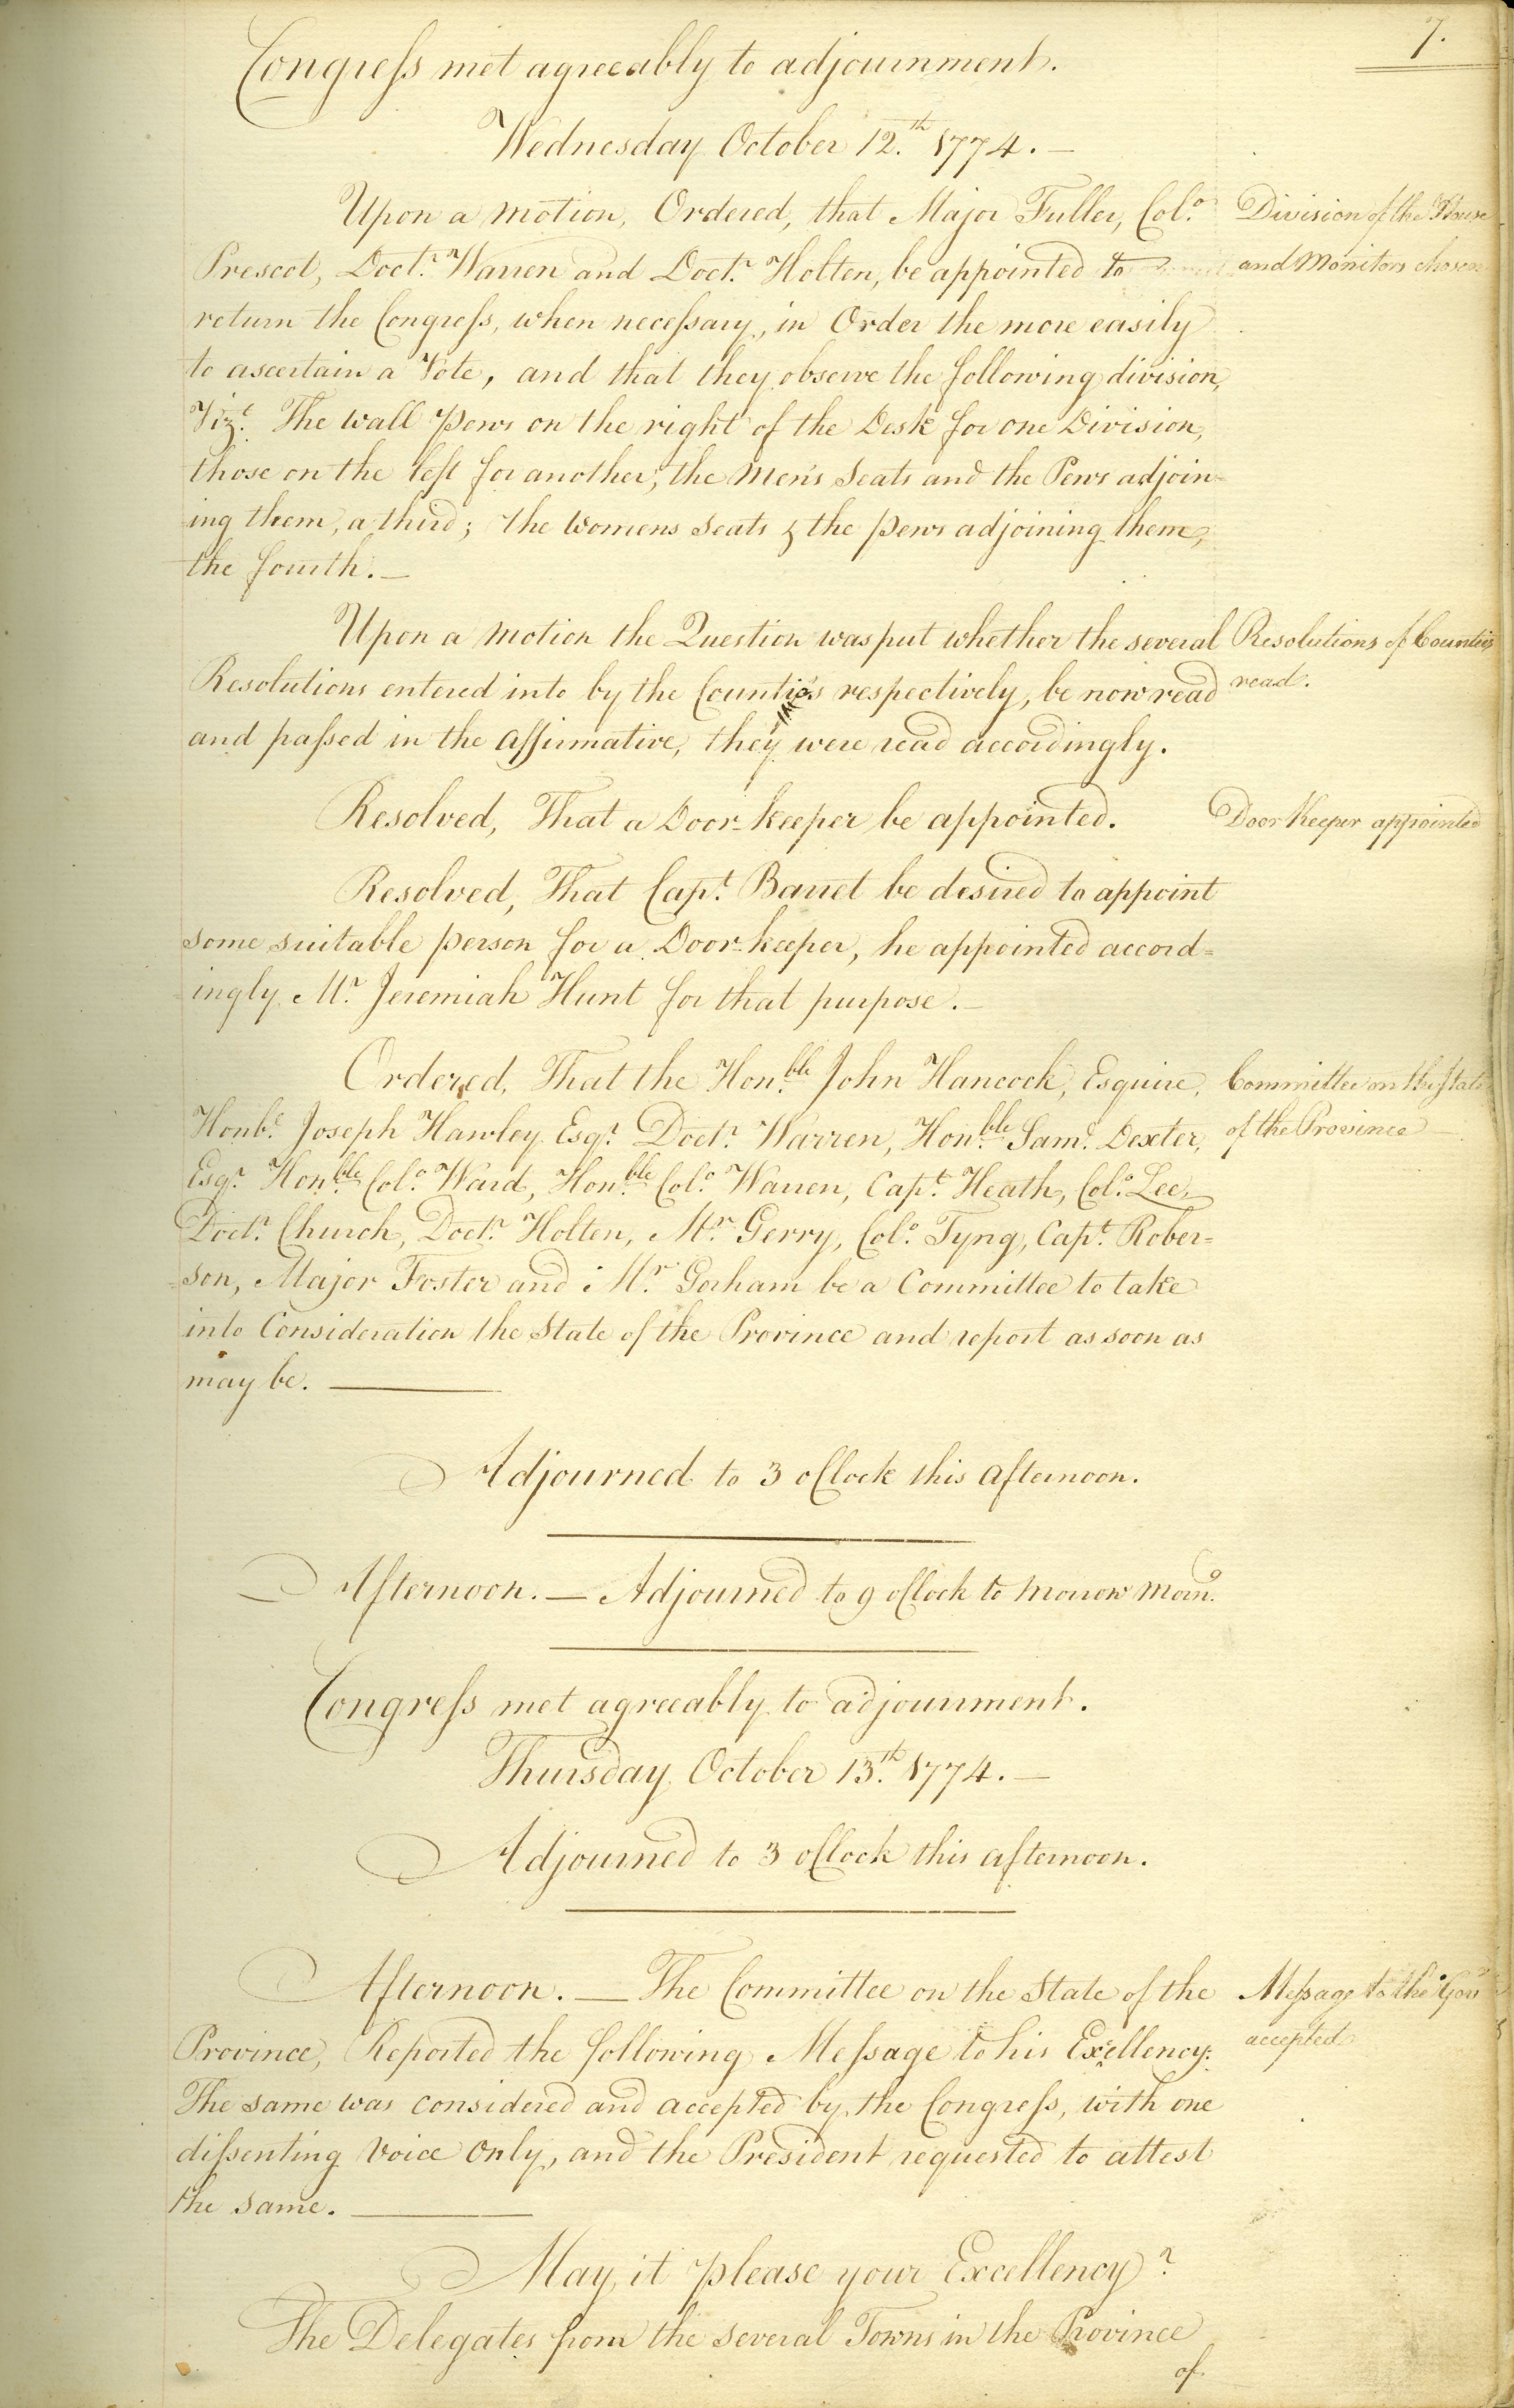 7.
Congress met agreeably to adjournment.
Wednesday October 12.th 1774.—
Upon a motion, Ordered, that Major Fuller, Col.o
Division of the House
Prescot, Doct.r Warren and Doct.r Holten, be appointed to
and Monitors chosen
return the Congress, when necessary, in Order the more easily
to ascertain a Vote, and that they observe the following division,
Vizt. The wall pews on the right of the Desk for one Division,
those on the left for another; the Men's Seats and the Pews adjoin-
ing them, a third; the Womens Seats & the pews adjoining them,
the fourth.—
Upon a motion the Question was put whether the several
Resolutions of Counties
Resolutions entered into by the Counties respectively, be now read
read.
and passed in the affirmative, they were read accordingly.
Resolved, That a Door-keeper be appointed.
Door Keeper appointed
Resolved, That Capt. Barret be desired to appoint
some suitable person for a Door-keeper, he appointed accord=
=ingly Mr. Jeremiah Hunt for that purpose.—
Ordered, That the Hon.ble John Hancock, Esquire,
Committee on the State
Honb.e Joseph Hawley Esqr. Doctr. Warren, Hon.ble Sam.l Dexter,
of the Province
Esqr. Hon.ble Col.o Ward, Hon.ble Col.o Warren, Capt. Heath, Col.o Lee,
Doctr. Church, Doctr. Holten, Mr. Gerry, Col.o Tyng, Capt. Rober=
=son, Major Foster and Mr. Gorham be a Committee to take
into Consideration the State of the Province and report as soon as
may be.—
Adjourned to 3 oClock this afternoon.
Afternoon.— Adjourned to 9 oClock to morrow morn.g
Congress met agreeably to adjournment.
Thursday October 13.th 1774.—
Adjourned to 3 oClock this afternoon.
Afternoon.— The Committee on the State of the
Message to the Gov.r
Province, Reported the following Message to his Exellency:
accepted
The same was considered and accepted by the Congress, with one
dissenting Voice Only, and the President requested to attest
the same.—
May it please your Excellency?
The Delegates from the several Towns in the Province
of